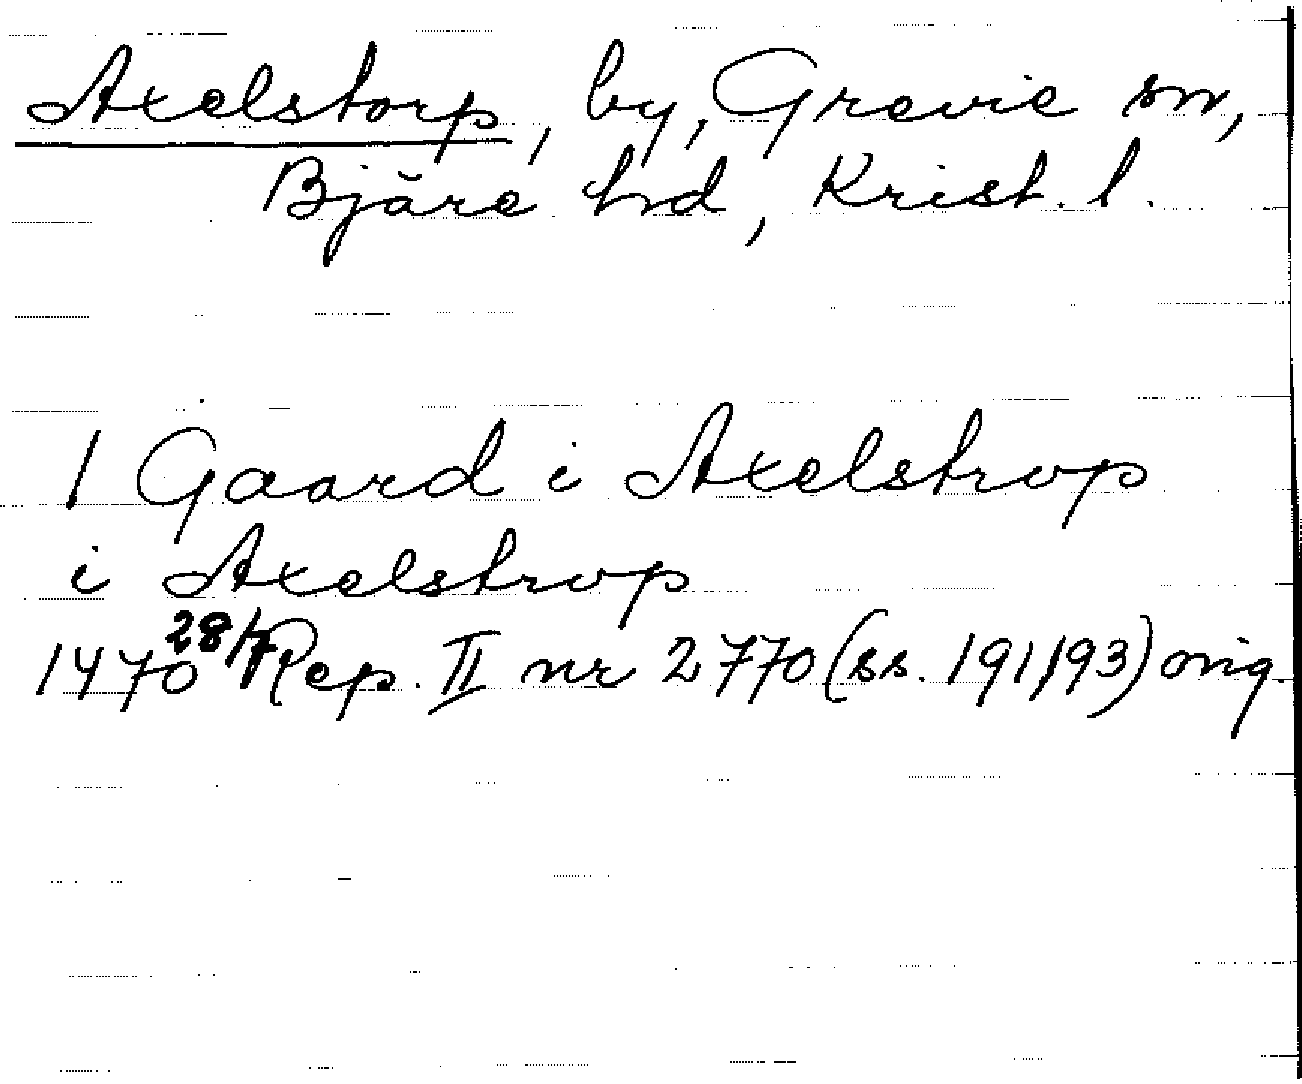 Axelstorp, by, Grevie sn,
Bjäre hd, Krist. l.
1 Gaard i Axelstrop
i Axelstrop
1470 28/7 Rep. II nr 2770 (ss. 191, 193) orig